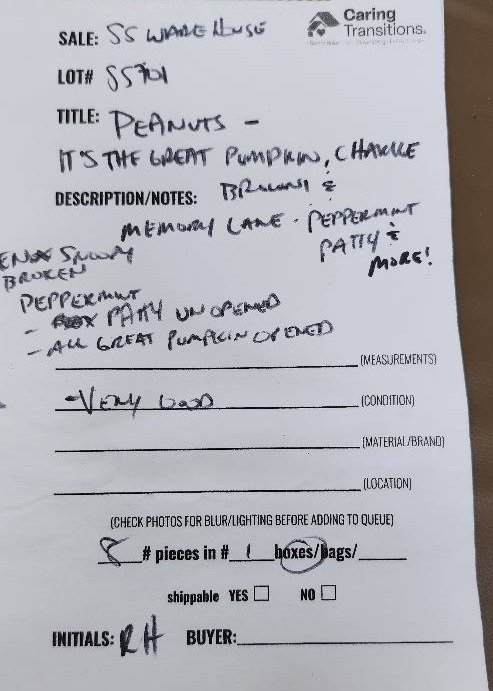 Caring
Transitions.
SALE: SS WAREHOUSE
LOT# SS701
TITLE: PEANUTS -
IT'S THE GREAT PUMPKIN, CHARLIE
DESCRIPTION/NOTES: BROWN! &
MEMORY LANE - PEPPERMINT
PATTY &
MORE!
SNOOPY
BROKEN
PEPPERMINT
- PATTY UNOPENED
- ALL GREAT PUMPKIN OPENED
(MEASUREMENTS)
- VERY GOOD (CONDITION)
(MATERIAL/BRAND)
(LOCATION)
(CHECK PHOTOS FOR BLUR/LIGHTING BEFORE ADDING TO QUEUE)
8 # pieces in # 1 boxes/bags/
shippable YES NO
INITIALS: RH BUYER: